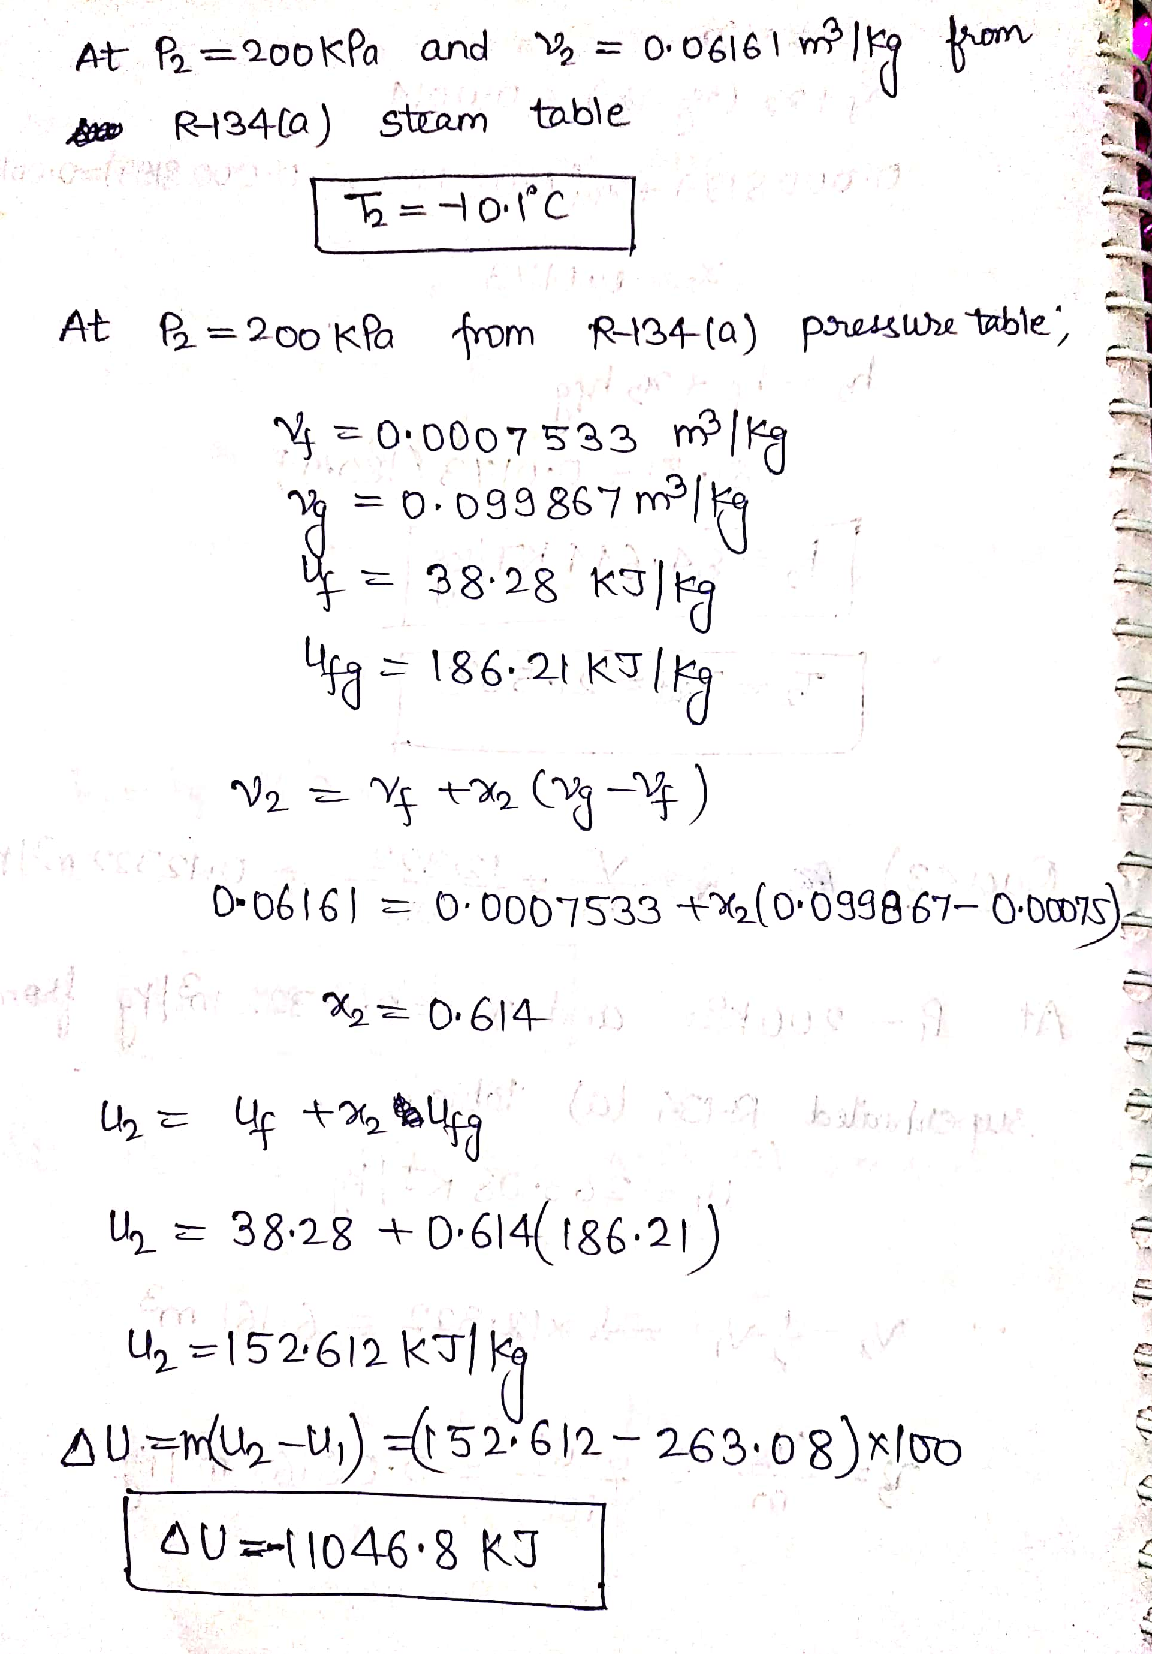 At P₂ = 200 kPa and v₂ = 0.06161 m³/kg from
R-134(a) steam table
T₂ = -10.1°C
At P₂ = 200 kPa from R-134(a) pressure table;
v_f = 0.0007533 m³/kg
v_g = 0.099867 m³/kg
u_f = 38.28 KJ/kg
u_fg = 186.21 KJ/kg
v₂ = v_f + x₂ (v_g - v_f)
0.06161 = 0.0007533 + x₂(0.099867 - 0.00075)
x₂ = 0.614
u₂ = u_f + x₂ u_fg
u₂ = 38.28 + 0.614(186.21)
u₂ = 152.612 KJ/kg
ΔU = m(u₂ - u₁) = (152.612 - 263.08)×100
ΔU = -11046.8 KJ